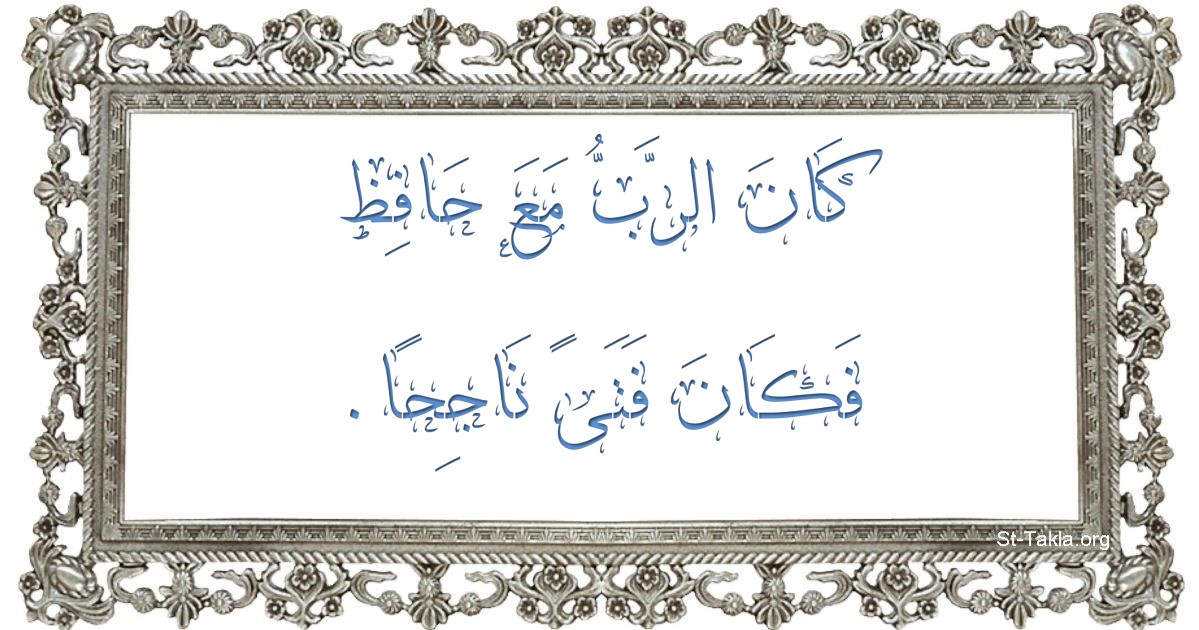 كَانَ الرَّبُّ مَعَ حَافِظٍ
فَكَانَ فَتَىً نَاجِحًا .
St-Takla.org